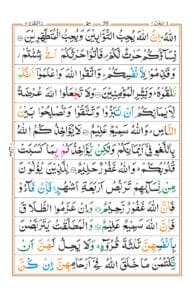 اللّٰهُ اِنَّ اللّٰهَ يُحِبُّ التَّوَّابِيْنَ وَيُحِبُّ الْمُتَطَهِّرِيْنَ
نِسَآؤُكُمْ حَرْثٌ لَّكُمْ فَاْتُوْا حَرْثَكُمْ اَنّٰى شِئْتُمْ
وَقَدِّمُوْا لِاَنْفُسِكُمْ وَاتَّقُوا اللّٰهَ وَاعْلَمُوْٓا اَنَّكُمْ
مُّلٰقُوْهُ وَبَشِّرِ الْمُؤْمِنِيْنَ وَلَا تَجْعَلُوا اللّٰهَ عُرْضَةً
لِّاَيْمَانِكُمْ اَنْ تَبَرُّوْا وَتَتَّقُوْا وَتُصْلِحُوْا بَيْنَ
النَّاسِ وَاللّٰهُ سَمِيْعٌ عَلِيْمٌ لَا يُؤَاخِذُكُمُ اللّٰهُ
بِاللَّغْوِ فِيْٓ اَيْمَانِكُمْ وَلٰكِنْ يُّؤَاخِذُكُمْ بِمَا كَسَبَتْ
قُلُوْبُكُمْ وَاللّٰهُ غَفُوْرٌ حَلِيْمٌ لِلَّذِيْنَ يُؤْلُوْنَ
مِنْ نِّسَآئِهِمْ تَرَبُّصُ اَرْبَعَةِ اَشْهُرٍ فَاِنْ فَآءُوْ
فَاِنَّ اللّٰهَ غَفُوْرٌ رَّحِيْمٌ وَاِنْ عَزَمُوا الطَّلَاقَ
فَاِنَّ اللّٰهَ سَمِيْعٌ عَلِيْمٌ وَالْمُطَلَّقٰتُ يَتَرَبَّصْنَ
بِاَنْفُسِهِنَّ ثَلٰثَةَ قُرُوْٓءٍ وَلَا يَحِلُّ لَهُنَّ اَنْ
يَّكْتُمْنَ مَا خَلَقَ اللّٰهُ فِيْٓ اَرْحَامِهِنَّ اِنْ كُنَّ